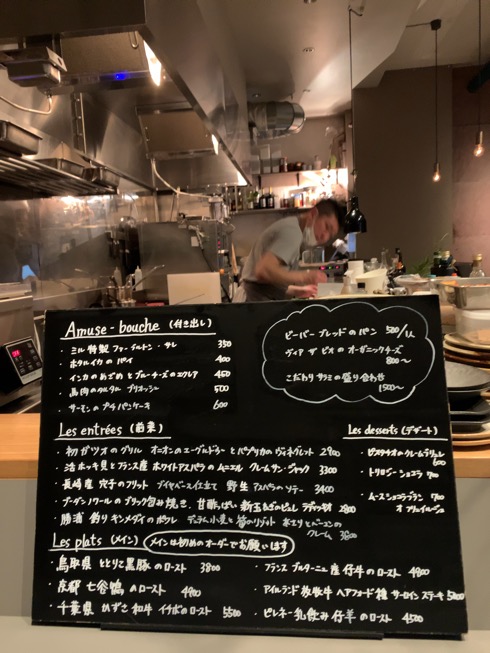 Amuse-bouche (付き出し)
・ミル特製 ファーブルトン・サレ 350
・ホタルイカのパイ 400
・インカのめざめとブルーチーズのエクレア 450
・馬肉のタルタル ブリオッシュ 500
・サーモンのプチパンケーキ 600
ビーバーブレッドのパン 500/1人
ヴィア ザ ビオのオーガニックチーズ
800〜
こだわりサラミの盛り合わせ
1500〜
Les entrées (前菜)
・初ガツオのグリル オニオンのエーグルドゥーとパプリカのヴィネグレット 2900
・活ホッキ貝とフランス産ホワイトアスパラのムニエル クレームサンジャック 3300
・長崎産 穴子のフリット ブイヤベース仕立て 野生アスパラのソテー 3400
・ブーダンノワールのブリック包み焼き、甘酢っぱい新玉ねぎのピュレ 2800
・勝浦 釣りキンメダイのポワレ デュラム小麦と筍のリゾット ベーコンの
クレーム 3800
Les desserts (デザート)
・ピスタチオのクレームブリュレ
600
・トリロジーショコラ 700
・ムースショコラブラン 700
Les plats (メイン) メインは初めのオーダーでお願いします
・鳥取県 とっとり黒豚のロースト 3800
・京都 七谷鴨のロースト 4900
・千葉県 かずさ和牛 イチボのロースト 5500
・フランス ブルターニュ産 仔牛のロースト 4800
・アイルランド 放牧牛 ヘアフォード種 サーロインステーキ
・ピレネー乳飲み仔羊のロースト 4500